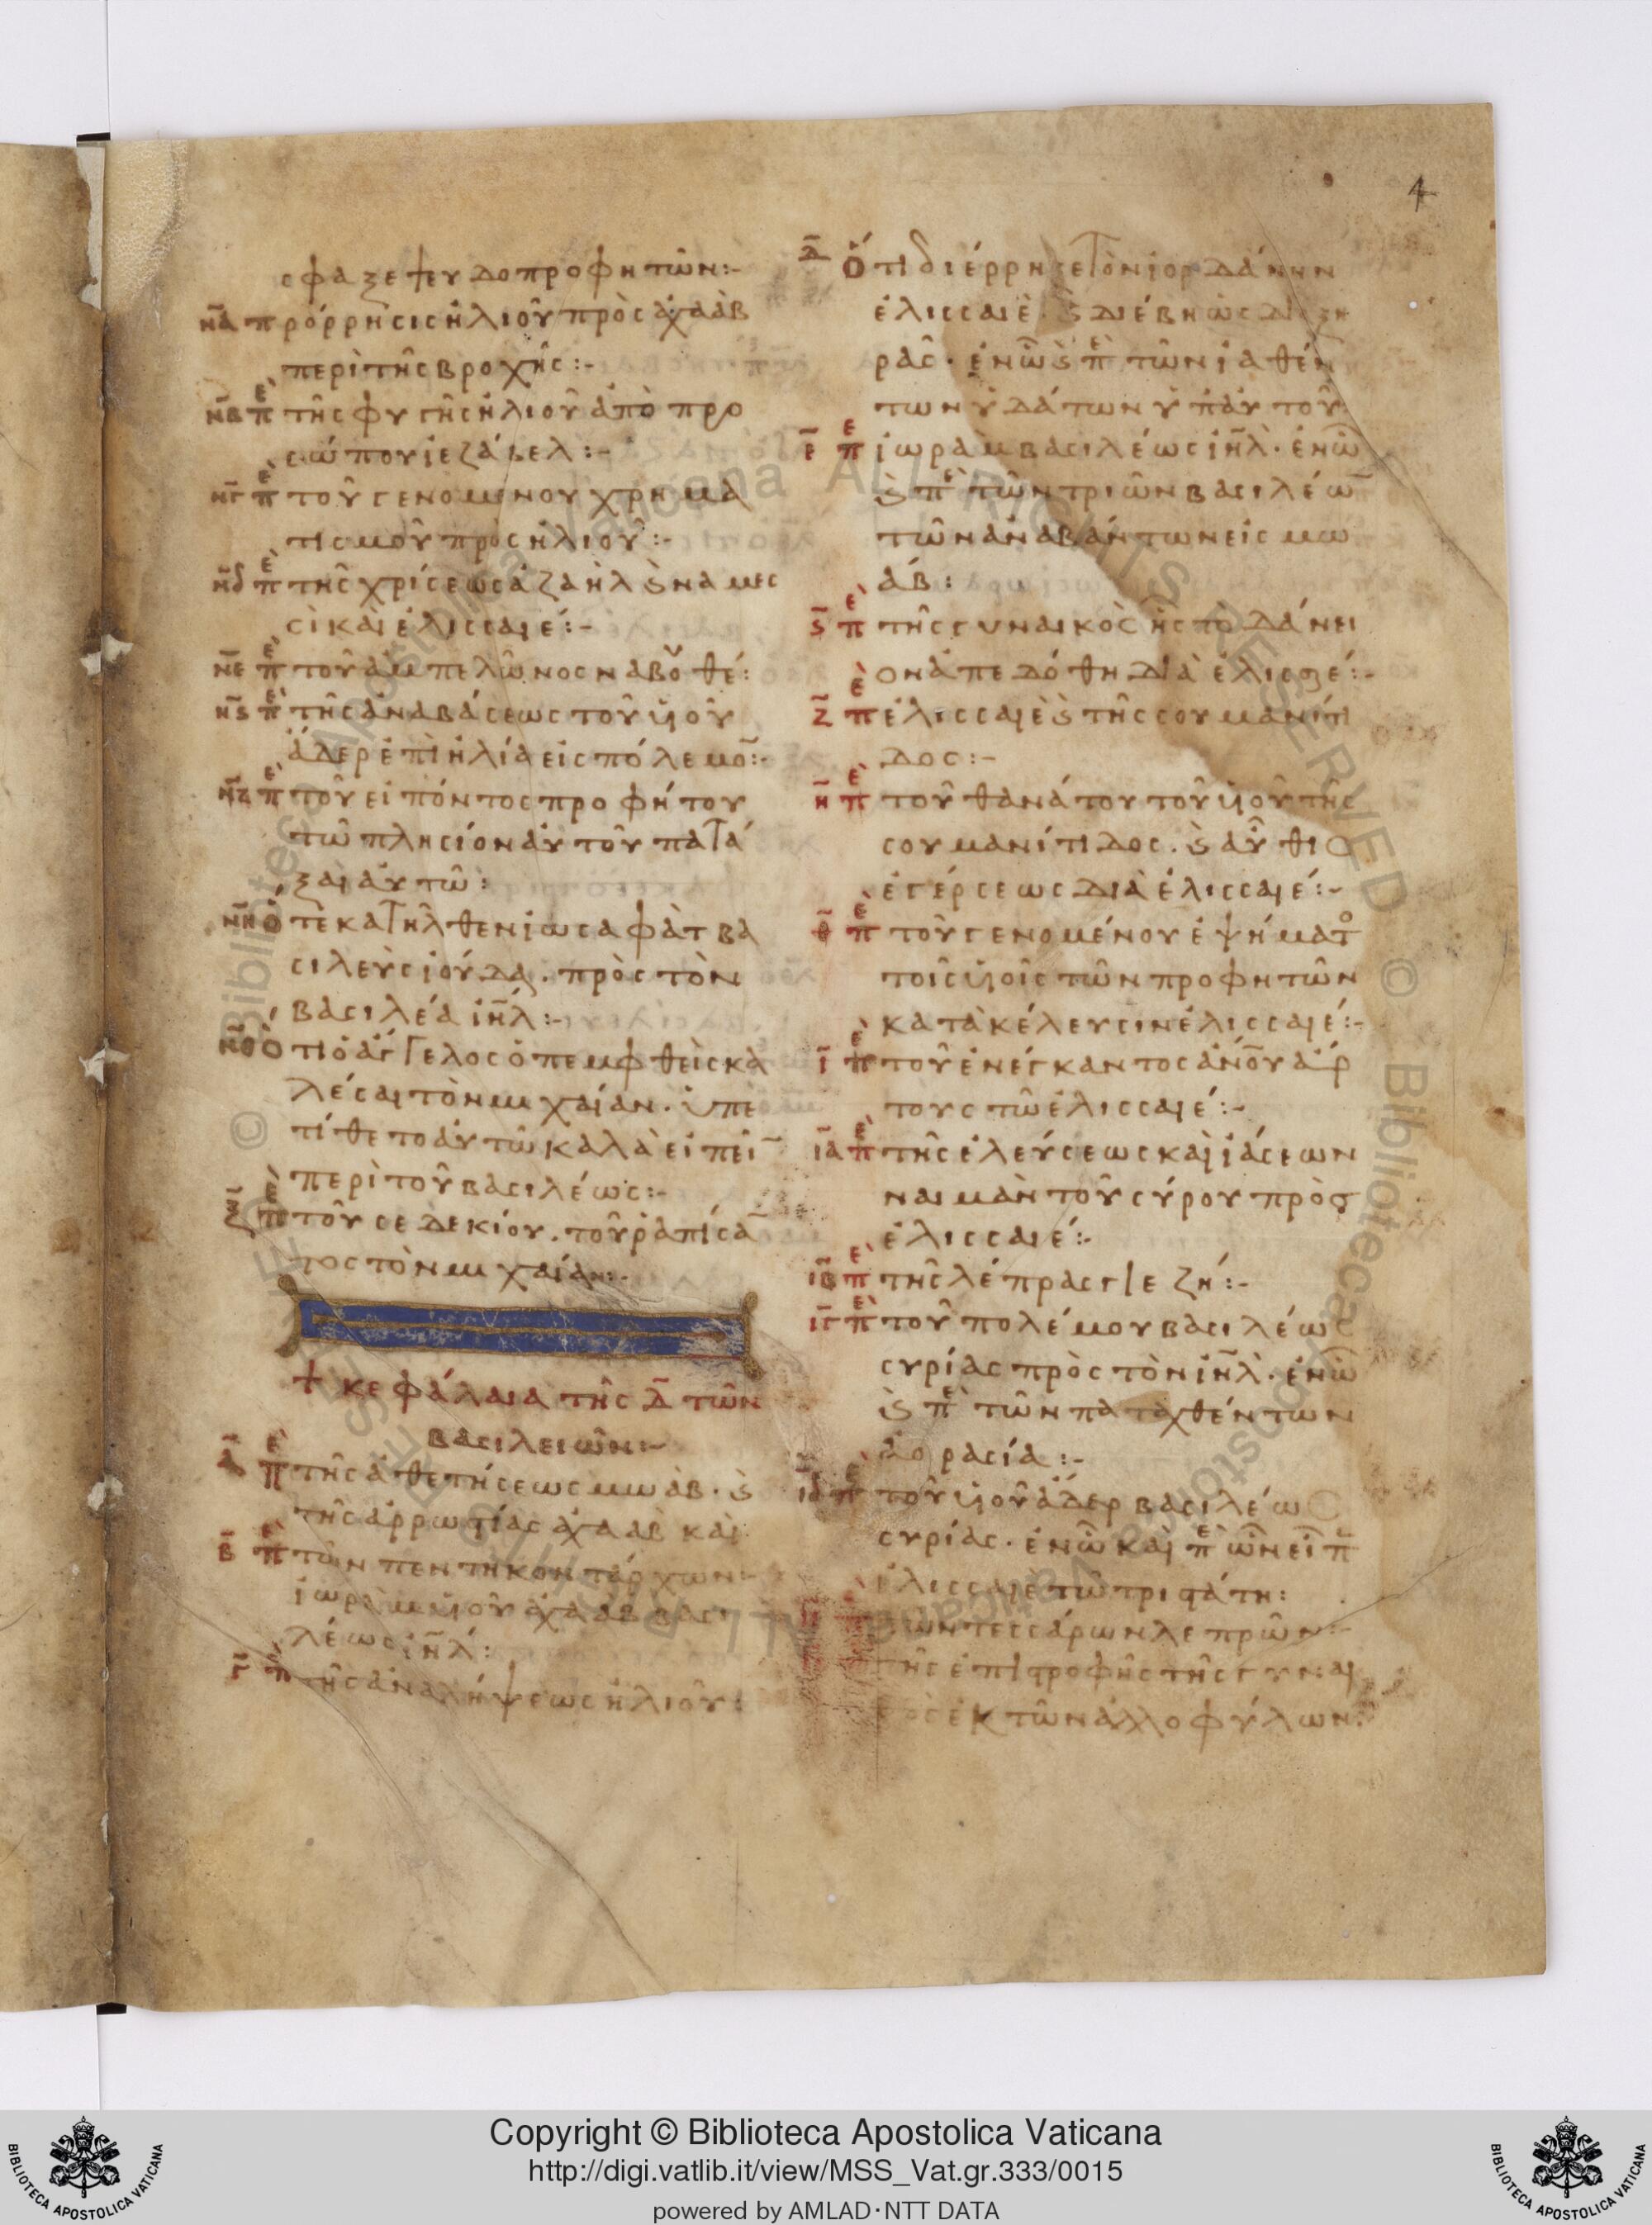 4
σφαξε ψευδοπροφητῶν:-
ν̅α̅ πρόρρησις ἡλιοῦ πρὸς ἀχαὰβ
περὶ τῆς βροχῆς:-
ν̅β̅ πε τῆς φυγῆς ἡλιοῦ ἀπὸ προ
σώπου ἰεζάβελ:-
ν̅γ̅ πε τοῦ γενομένου χρημα
τισμοῦ πρὸς ἡλιοῦ:-
ν̅δ̅ πε τῆς χρίσεως ἀζαὴλ ϗ ναμεσ
σὶ καὶ ἐλισσαιέ:-
ν̅ε̅ πε τοῦ ἀμπελῶνος ναβουθέ:
ν̅ϛ̅ πε τῆς ἀναβάσεως τοῦ υἱοῦ
ἄδερ ἐπὶ ἡλία εἰς πόλεμο̅:-
ν̅ζ̅ πε τοῦ εἰπόντος προφήτου
τῶ πλησίον αὐτοῦ πατά
ξαι αὐτῶ:
ν̅η̅ ὅτε κατῆλθεν ἰωσαφὰτ βα
σιλεὺς ἰούδα. πρὸς τὸν
βασιλέα ἰη̅λ:-
ν̅θ̅ ὅτι ὁ ἄγγελος ὁ πεμφθεὶς κα
λέσαι τὸν μιχαίαν. ὑπε
τίθετο αὐτῶ καλὰ εἰπεῖ̅
περὶ τοῦ βασιλέως:-
ξ̅ πε τοῦ σεδεκίου. τοῦ ῥαπίσα̅
τος τὸν μιχαίαν:-
+ κεφάλαια τῆς δ̅ τῶν
βασιλειῶν:-
α̅ πε τῆς ἀθετήσεως μωάβ. ϗ
τῆς ἀρρωστίας ἀχαὰβ καὶ
β̅ πε τῶν πεντηκοντάρχων:-
ἰωρὰμ υἱοῦ ἀχαὰβ βασι
λέως ἰη̅λ:
γ̅ πε τῆς ἀναλήψεως ἡλιοῦ:
δ̅ ὅτι διέρρηξε τὸν ἰορδάνην
ἐλισσαιὲ. ϗ διέβη ὡς διὰ ξη
ρᾶς. ἐν ὧ ϗ πε τῶν ἰαθέν
των ὑδάτων ὑπ' αὐτοῦ
ε̅ πε ἰωρὰμ βασιλέως ἰη̅λ. ἐν ὧ
ϗ πε τῶν τριῶν βασιλέω̅
τῶν ἀναβάντων εἰς μω
άβ:
ϛ̅ πε τῆς γυναικὸς ἧς τὸ δάνει
ον ἀπεδόθη διὰ ἐλισσέ:-
ζ̅ πε ἐλισσαιὲ ϗ τῆς σουμανίτι
δος:-
η̅ πε τοῦ θανάτου τοῦ υἱοῦ τῆς
σουμανίτιδος. ϗ αὖθις
ἐγέρσεως διὰ ἐλισσαιέ:-
θ̅ πε τοῦ γενομένου ἑψήματο
τοῖς υἱοῖς τῶν προφητῶν
κατὰ κέλευσιν ἐλισσαιέ:-
ι̅ πε τοῦ ἐνέγκαντος ἀν̅ο̅υ ἄρ
τους τῶ ἐλισσαιέ:-
ι̅α̅ πε τῆς ἐλεύσεως καὶ ἰάσεως
ναιμὰν τοῦ σύρου πρὸς
ἐλισσαιέ:-
ι̅β̅ πε τῆς λέπρας γιεζή:-
ι̅γ̅ πε τοῦ πολέμου βασιλέως
συρίας πρὸς τὸν ἰη̅λ. ἐν ὧ
ϗ πε τῶν παταχθέντων
ἀορασία:-
ι̅δ̅ πε τοῦ υἱοῦ ἄδερ βασιλέως
συρίας. ἐν ὧ καὶ πε ὧν εἶπ
ἐλισσαιὲ τῶ τριστάτη:
τῶν τεσσάρων λεπρῶν:-
τῆς ἐπιστροφῆς τῆς γυναι
κὸς ἐκ τῶν ἀλλοφύλων:
Copyright © Biblioteca Apostolica Vaticana
http://digi.vatlib.it/view/MSS_Vat.gr.333/0015
powered by AMLAD·NTT DATA
BIBLIOTECA APOSTOLICA VATICANA
BIBLIOTECA APOSTOLICA VATICANA